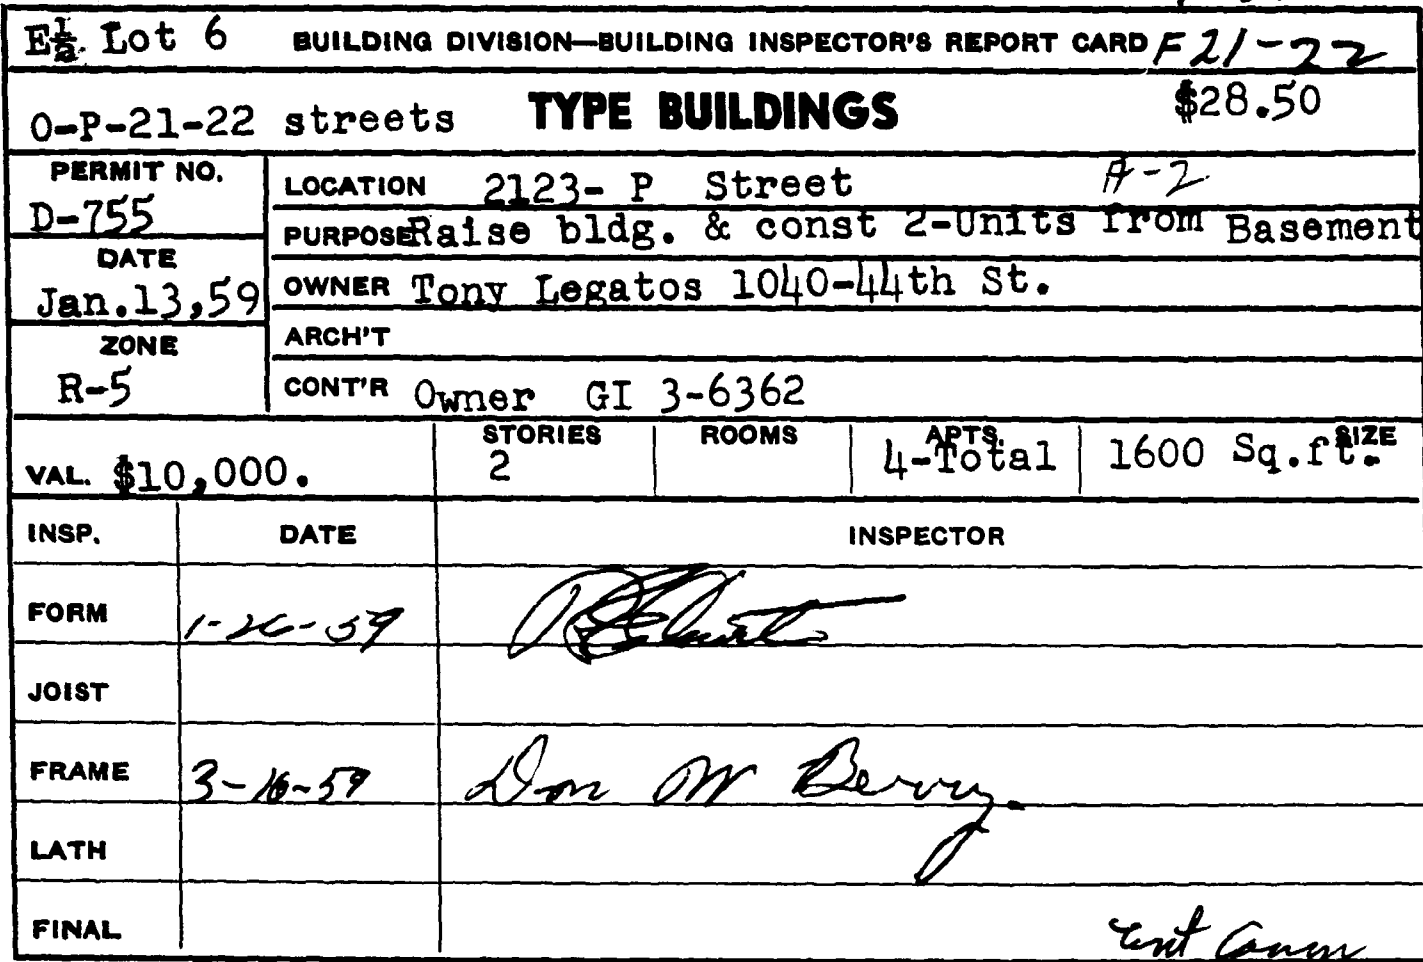 E½ Lot 6 BUILDING DIVISION—BUILDING INSPECTOR'S REPORT CARD F21-22
O-P-21-22 streets TYPE BUILDINGS $28.50
PERMIT NO.
D-755
LOCATION 2123- P Street A-2
PURPOSE Raise bldg. & const 2-Units from Basement
DATE
Jan.13,59
OWNER Tony Legatos 1040-44th St.
ARCH'T
ZONE
R-5
CONT'R Owner GI 3-6362
VAL. $10,000.
STORIES
2
ROOMS
APTS.
4-Total
SIZE
1600 Sq.ft.
INSP. DATE INSPECTOR
FORM 1-26-59
JOIST
FRAME 3-16-59 Don W Berry.
LATH
FINAL